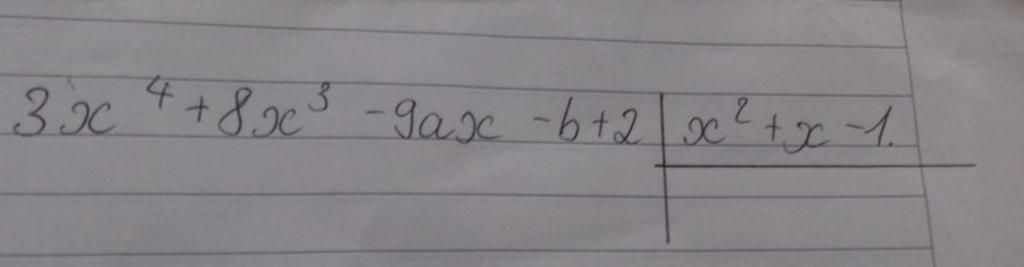 3x⁴+8x³-9ax-b+2 | x²+x-1.